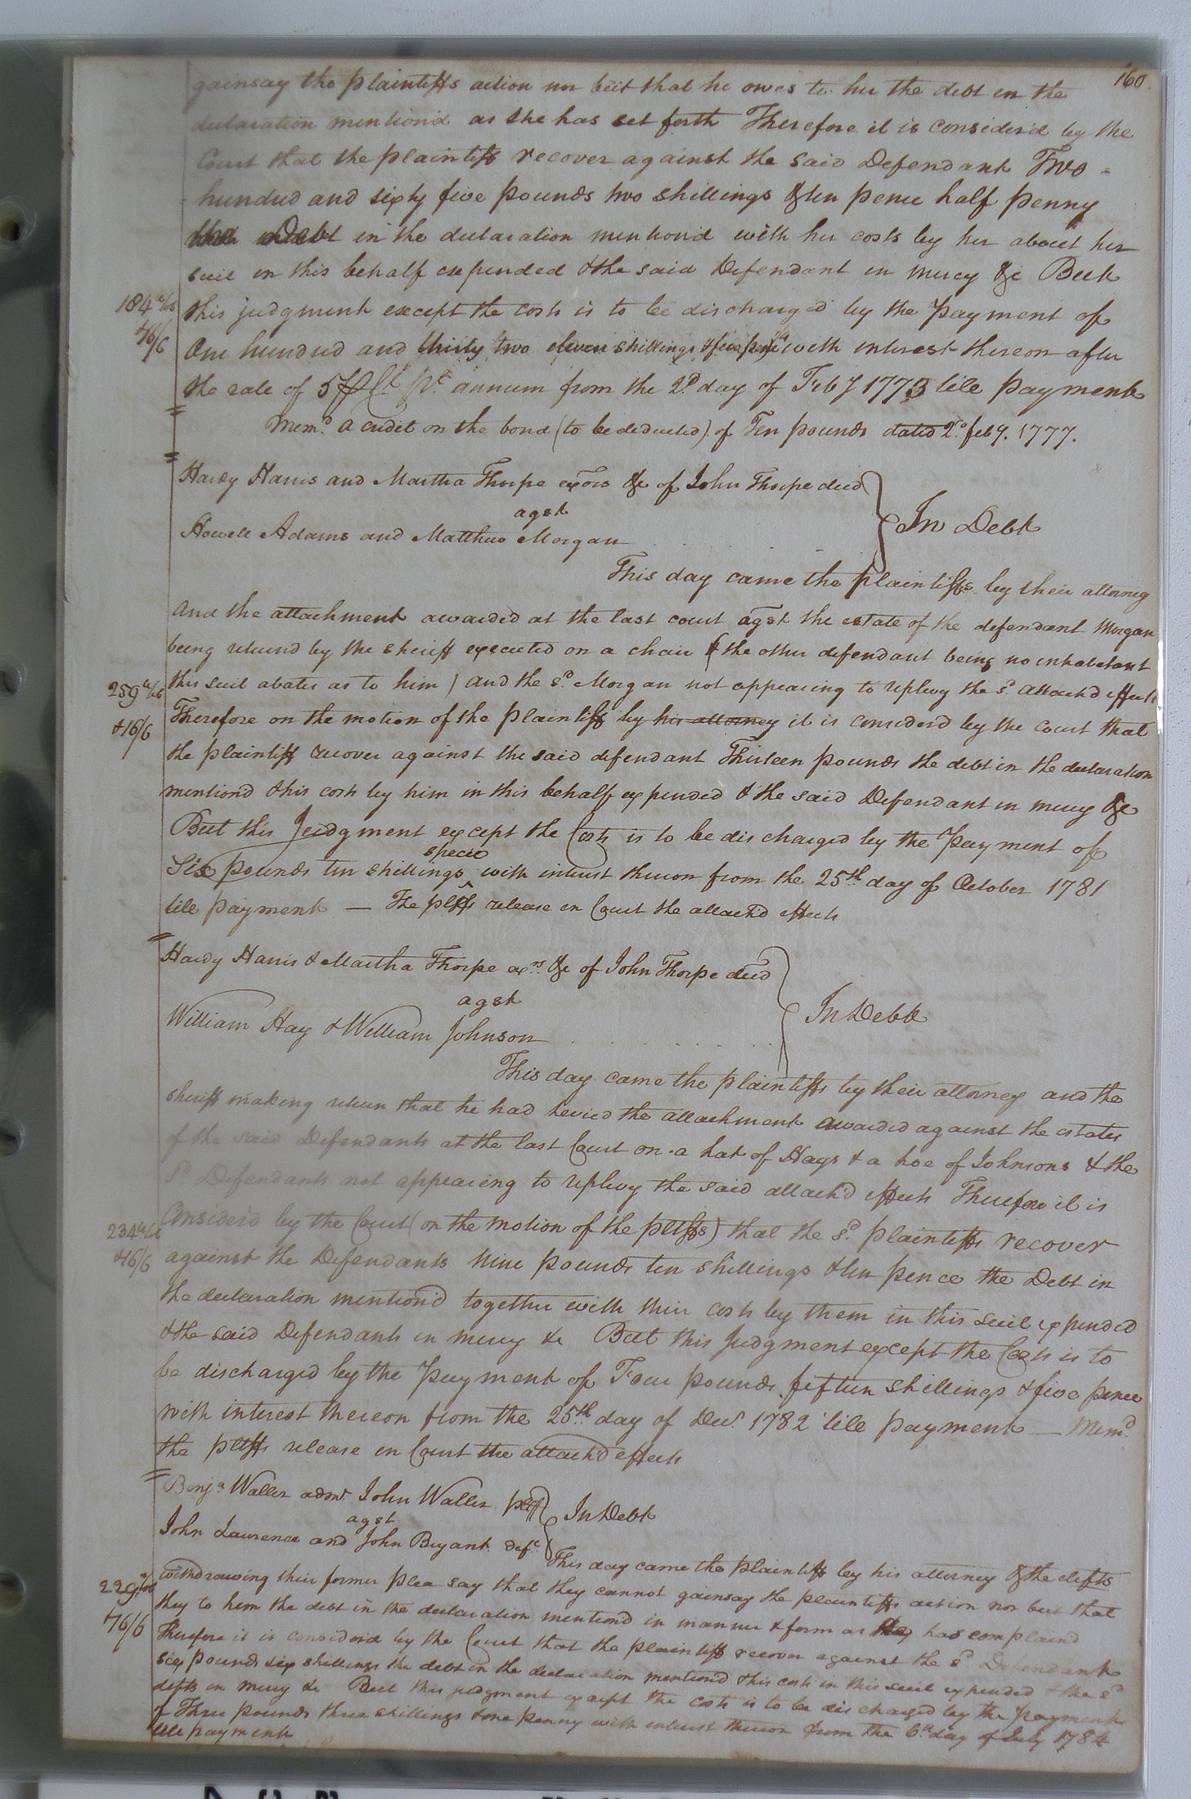 160.
gainsay the plaintiffs action nor but that he owes to her the debt in the
declaration mention'd as she has set forth Therefore it is consider'd by the
Court that the plaintiff recover against the said Defendant Two
hundred and sixty five pounds two shillings & ten pence half penny
the Debt in the declaration mention'd with her costs by her about her
suit in this behalf expended & the said Defendant in mercy &c But
184
this judgment except the costs is to be discharg'd by the Payment of
One hundred and thirty two eleven shillings & five pence with interest thereon after
the rate of 5 annum from the 2d day of Feby 1773 till payment
Memo. a credit on the bond (to be deducted) of Ten pounds dated 2d feby. 1777.
Hardy Harris and Martha Thorpe exors &c of John Thorpe deced
agst
In Debt
Howell Adams and Matthew Morgan
This day came the plaintiffs by their attorney
And the attachment awarded at the last court agst the estate of the defendant Morgan
being returnd by the sheriff executed on a chair (& the other defendant being no inhabitant
259
this suit abates as to him) and the sd. Morgan not appearing to replevy the sd. attach'd effects
Therefore on the motion of the plaintiff by his attorney it is consider'd by the Court that
&16/6
the plaintiff recover against the said defendant Thirteen pounds the debt in the declaration
mention'd & his costs by him in this behalf expended & the said Defendant in mercy &c
But this Judgment except the Costs is to be discharged by the Payment of
specie
Six pounds ten shillings ^ with interest thereon from the 25th day of October 1781
till payment — The pltfs release in Court the attach'd effects
Hardy Harris & Martha Thorpe exrs &c of John Thorpe deced
agst
In Debt
William Hay & William Johnson
This day came the plaintiffs by their attorney and the
sheriff making return that he had levied the attachment awarded against the estates
of the said Defendants at the last Court on a hat of Hays & a hoe of Johnsons & the
sd Defendants not appearing to replevy the said attach'd effects Therefore it is
234
Consider'd by the Court (on the motion of the pltffs) that the sd. plaintiffs recover
&16/6
against the Defendants Nine pounds ten shillings & ten pence the Debt in
the declaration mention'd together with their costs by them in this suit expended
& the said Defendants in mercy &c But this Judgment except the Costs is to
be discharged by the Payment of Four pounds fifteen shillings & five pence
with interest thereon from the 25th day of Decr. 1782 till payment — Memo
the pltffs release in Court the attach'd effects
Benja Waller admr John Waller pltff
agst
In Debt
John Lawrence and John Bryant defts
This day came the plaintiff by his attorney & the defts
229
withdrawing their former plea say that they cannot gainsay the plaintiffs action nor but that
they to him the debt in the declaration mention'd in manner & form as he has complain'd
&16/6
Therefore it is consider'd by the Court that the plaintiff recover against the sd Defendants
six pounds six shillings the debt in the declaration mention'd & his costs in this suit expended & the sd
defts in mercy &c But this judgment except the costs is to be discharged by the payment
of Three pounds three shillings & one penny with interest thereon from the 6th day of July 1784
till payment